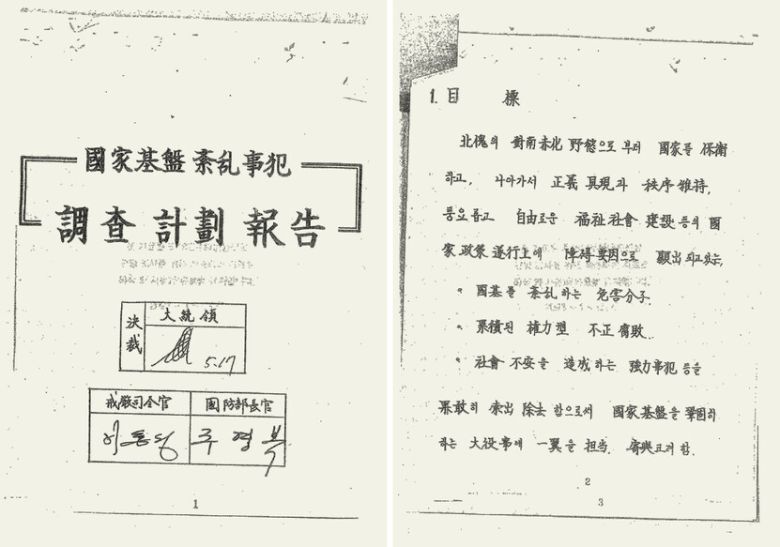 國家基盤紊乱事犯
調査計劃報告
決裁
大統領
5.17
戒嚴司令官
國防部長官
주영복
1
1. 目 標
北傀의 對南赤化 野慾으로 부터 國家를 保衛
하고, 나아가서 正義具現과 秩序維持,
풍요롭고 自由로운 福祉社會 建設등의 國
家政策遂行上에 障碍要因으로 顯出되고있는,
國基를 紊乱하는 危害分子
累積된 權力型 不正腐敗
社會不安을 造成하는 強力事犯等을
果敢히 索出 除去함으로서 國家基盤을 鞏固히
하는 大役事에 一翼을 担当, 寄與코저 함.
2
3